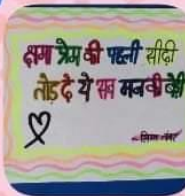 क्षमा प्रेम की पहली सीढ़ी
तोड़ दे ये सब मन की बेड़ी